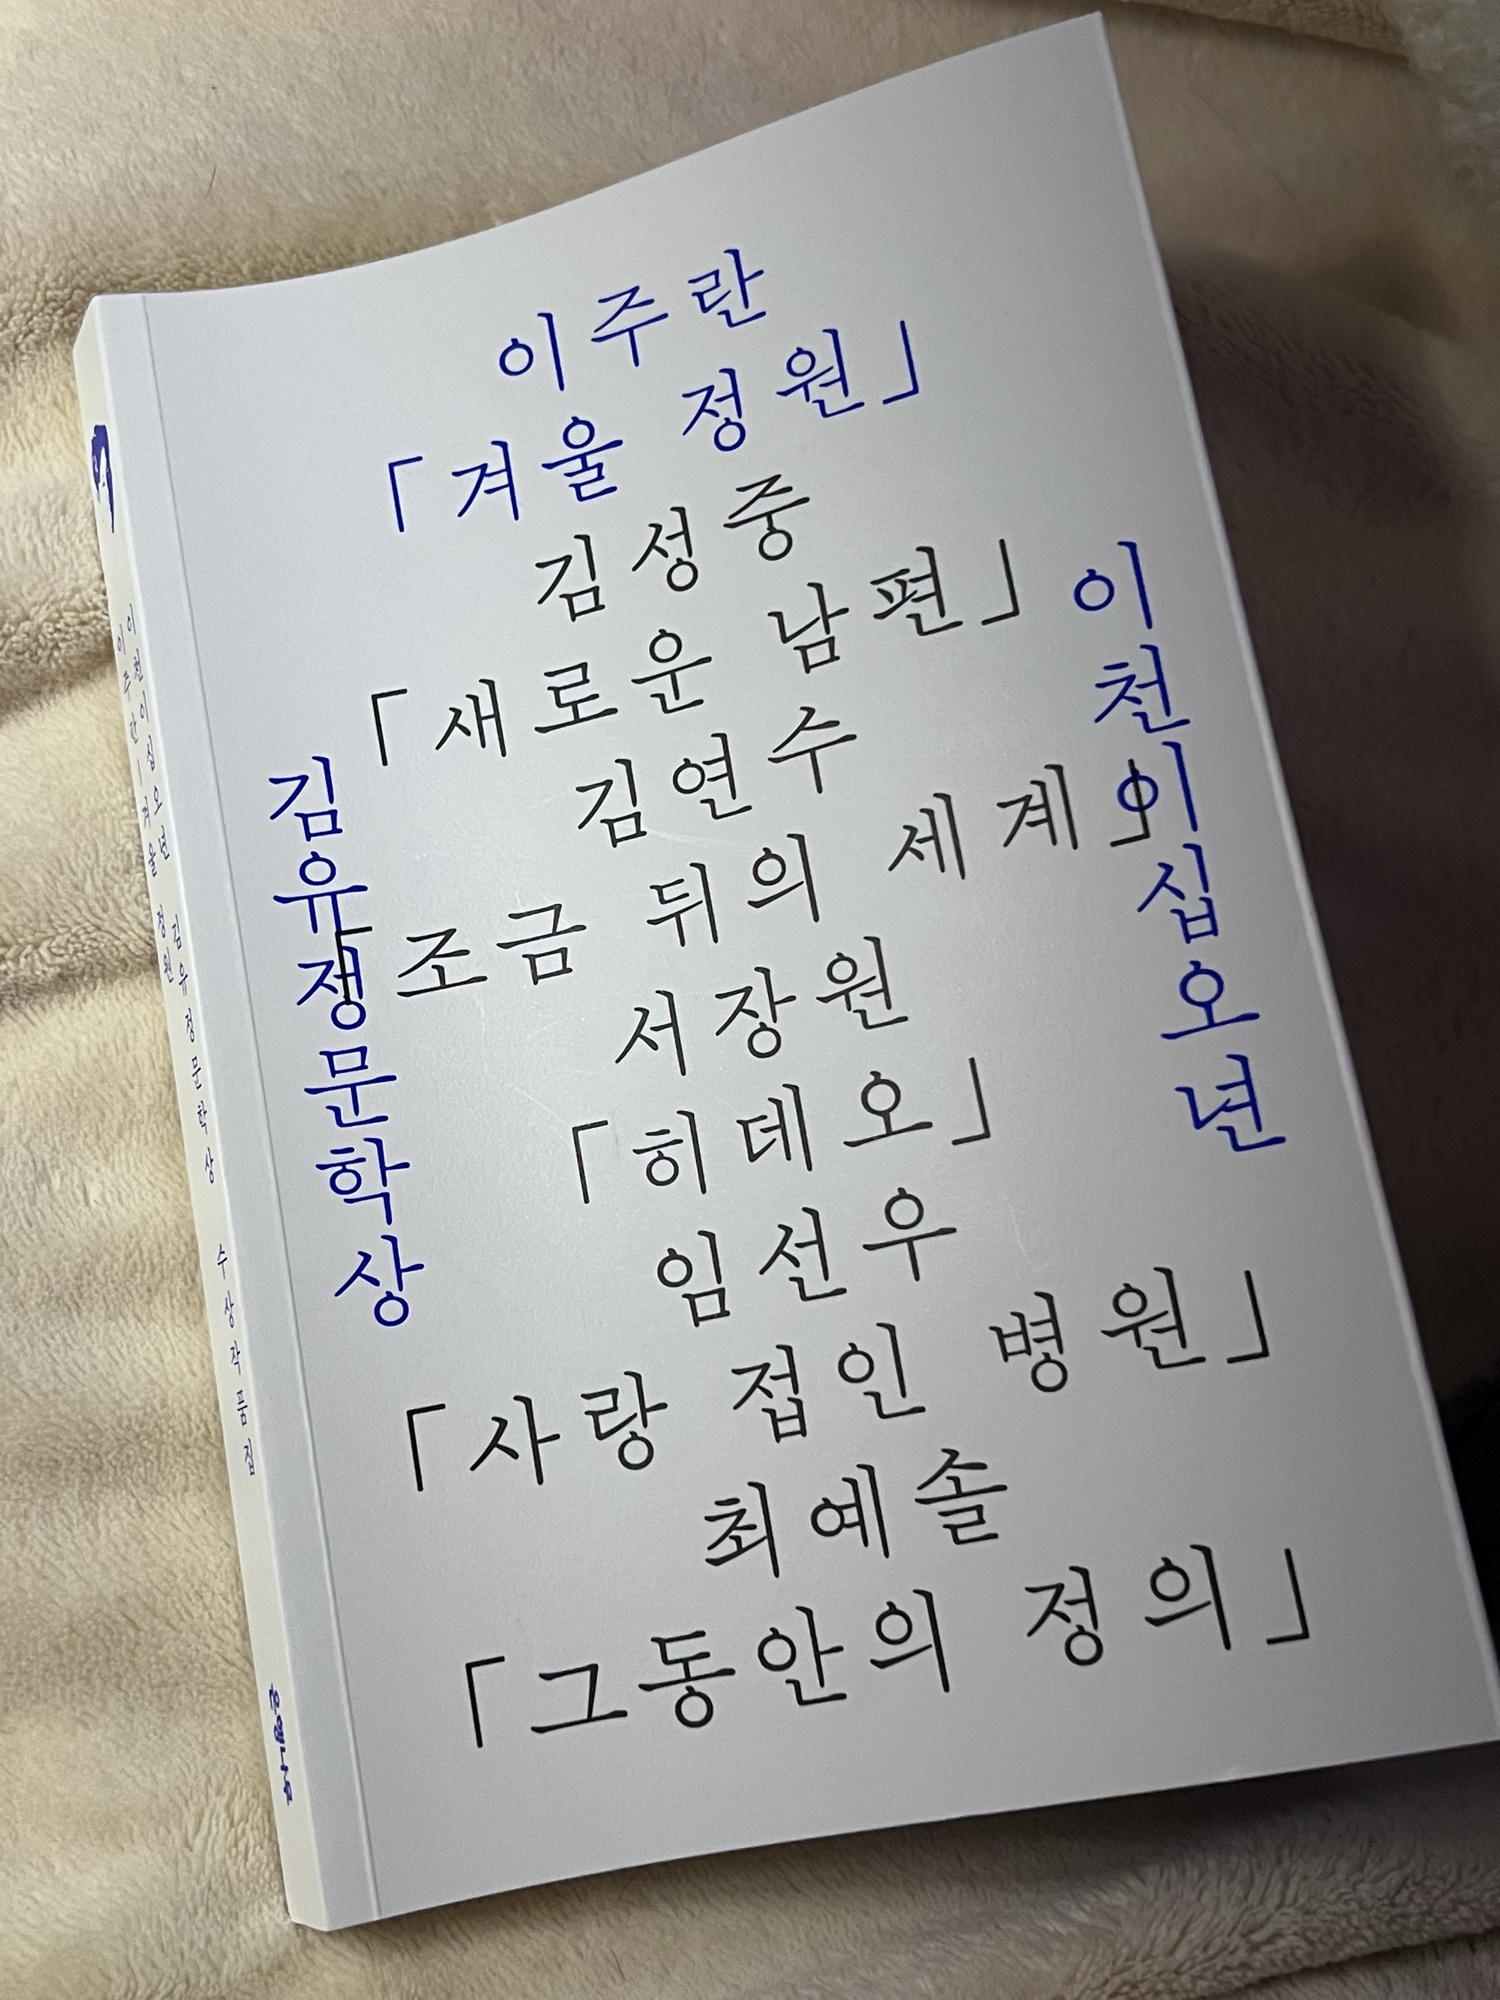 이주란
「겨울 정원」
김성중
「새로운 남편」
김연수
「조금 뒤의 세계」
서장원
「히데오」
임선우
「사랑 접인 병원」
최예솔
「그동안의 정의」
김유정문학상
이천이십오년
이천이십오년 김유정문학상 수상작품집
이주란 겨울 정원
은행나무